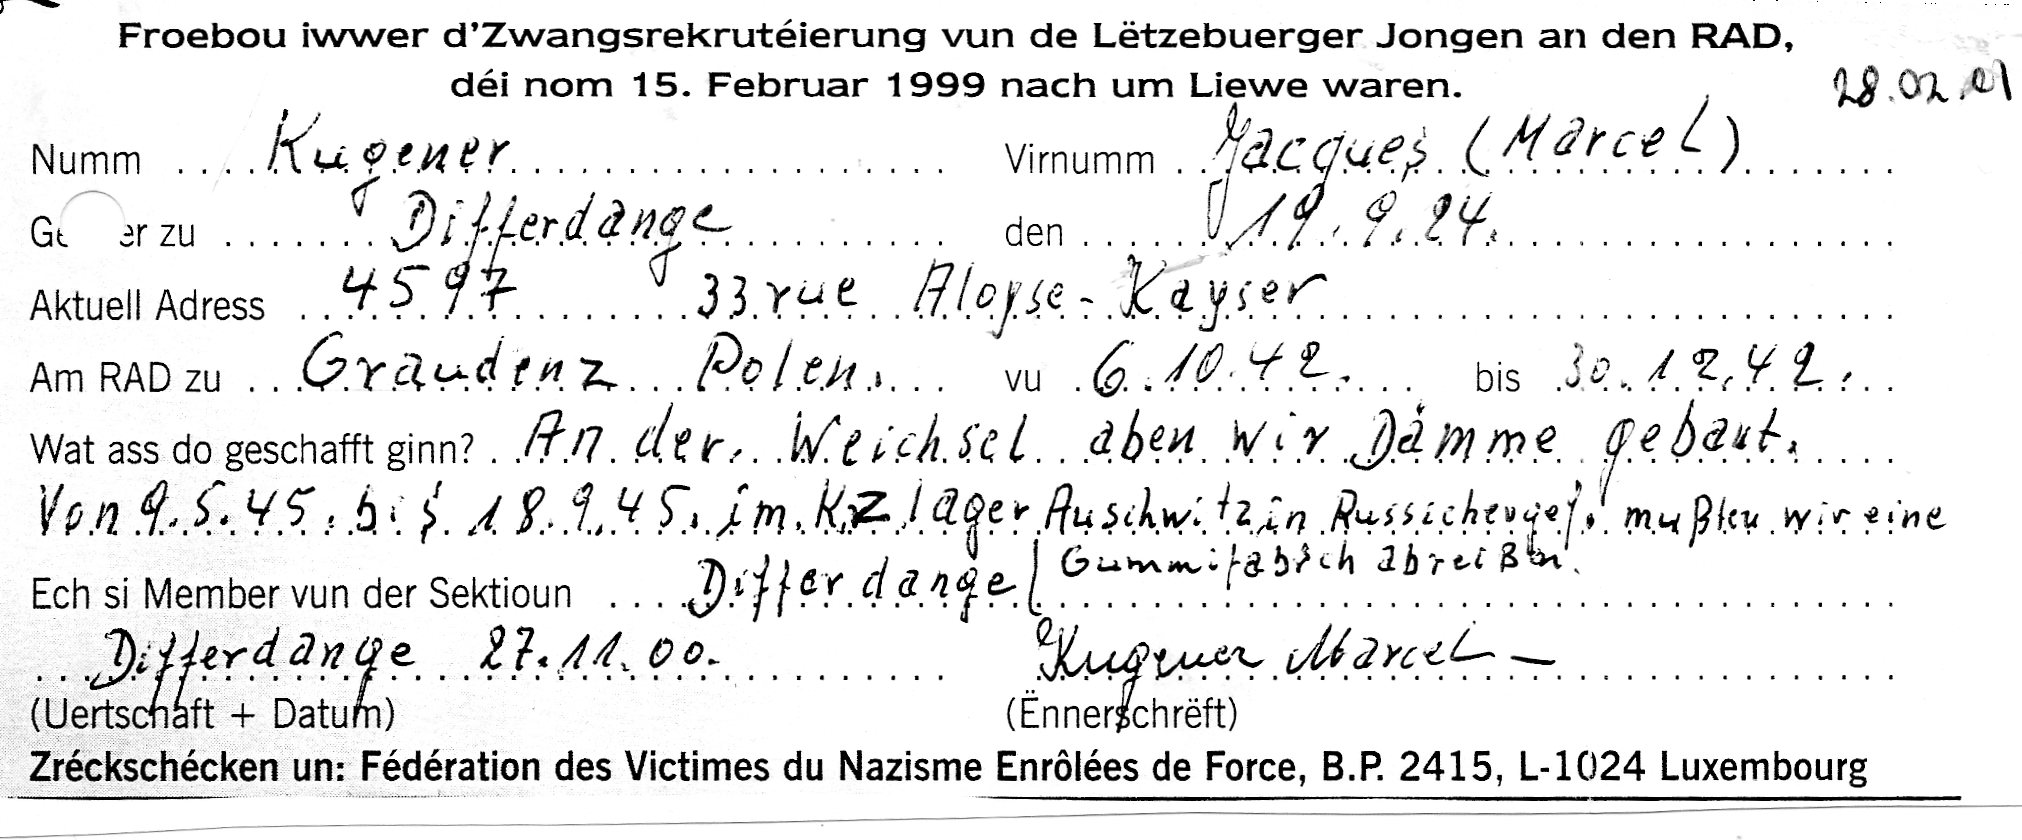 Froebou iwwer d'Zwangsrekrutéierung vun de Lëtzebuerger Jongen an den RAD,
déi nom 15. Februar 1999 nach um Liewe waren.
28.02.01
Numm Kugener Virnumm Jacques (Marcel)
Ge er zu Differdange den 19.9.24.
Aktuell Adress 4597 33 rue Aloyse-Kayser
Am RAD zu Graudenz Polen. vu 6.10.42. bis 30.12.42.
Wat ass do geschafft ginn? An der Weichsel aben wir Dämme gebaut.
Von 9.5.45. bis 18.9.45. im KZ lager Auschwitz in mußten wir eine
Gummifabrich abreißen.
Ech si Member vun der Sektioun Differdange
Differdange 27.11.00. Kugener Marcel
(Uertschaft + Datum) (Ënnerschrëft)
Zréckschécken un: Fédération des Victimes du Nazisme Enrôlées de Force, B.P. 2415, L-1024 Luxembourg